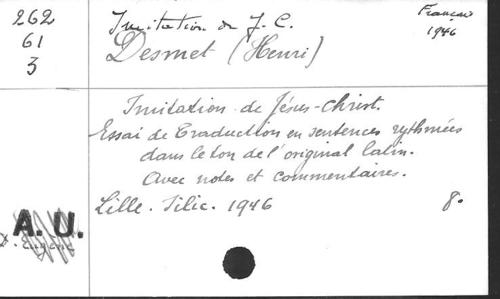 262
61
3
Imitation de J. C.
Français
1946
Desmet (Henri)
Imitation de Jésus-Christ.
Essai de Traduction en sentences rythmées
dans le ton de l'original latin.
Avec notes et commentaires.
Lille. Silic. 1946
8.
A. U.
Eugène